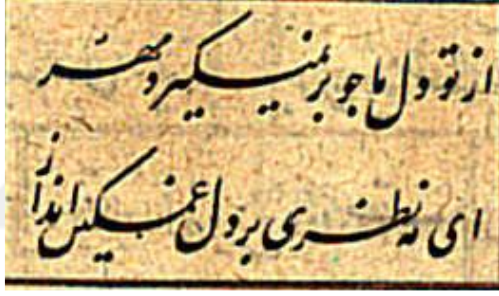 از تو دل ما جو بر نمیگیرد مهر
ای مه نظری بر دل غمگین انداز